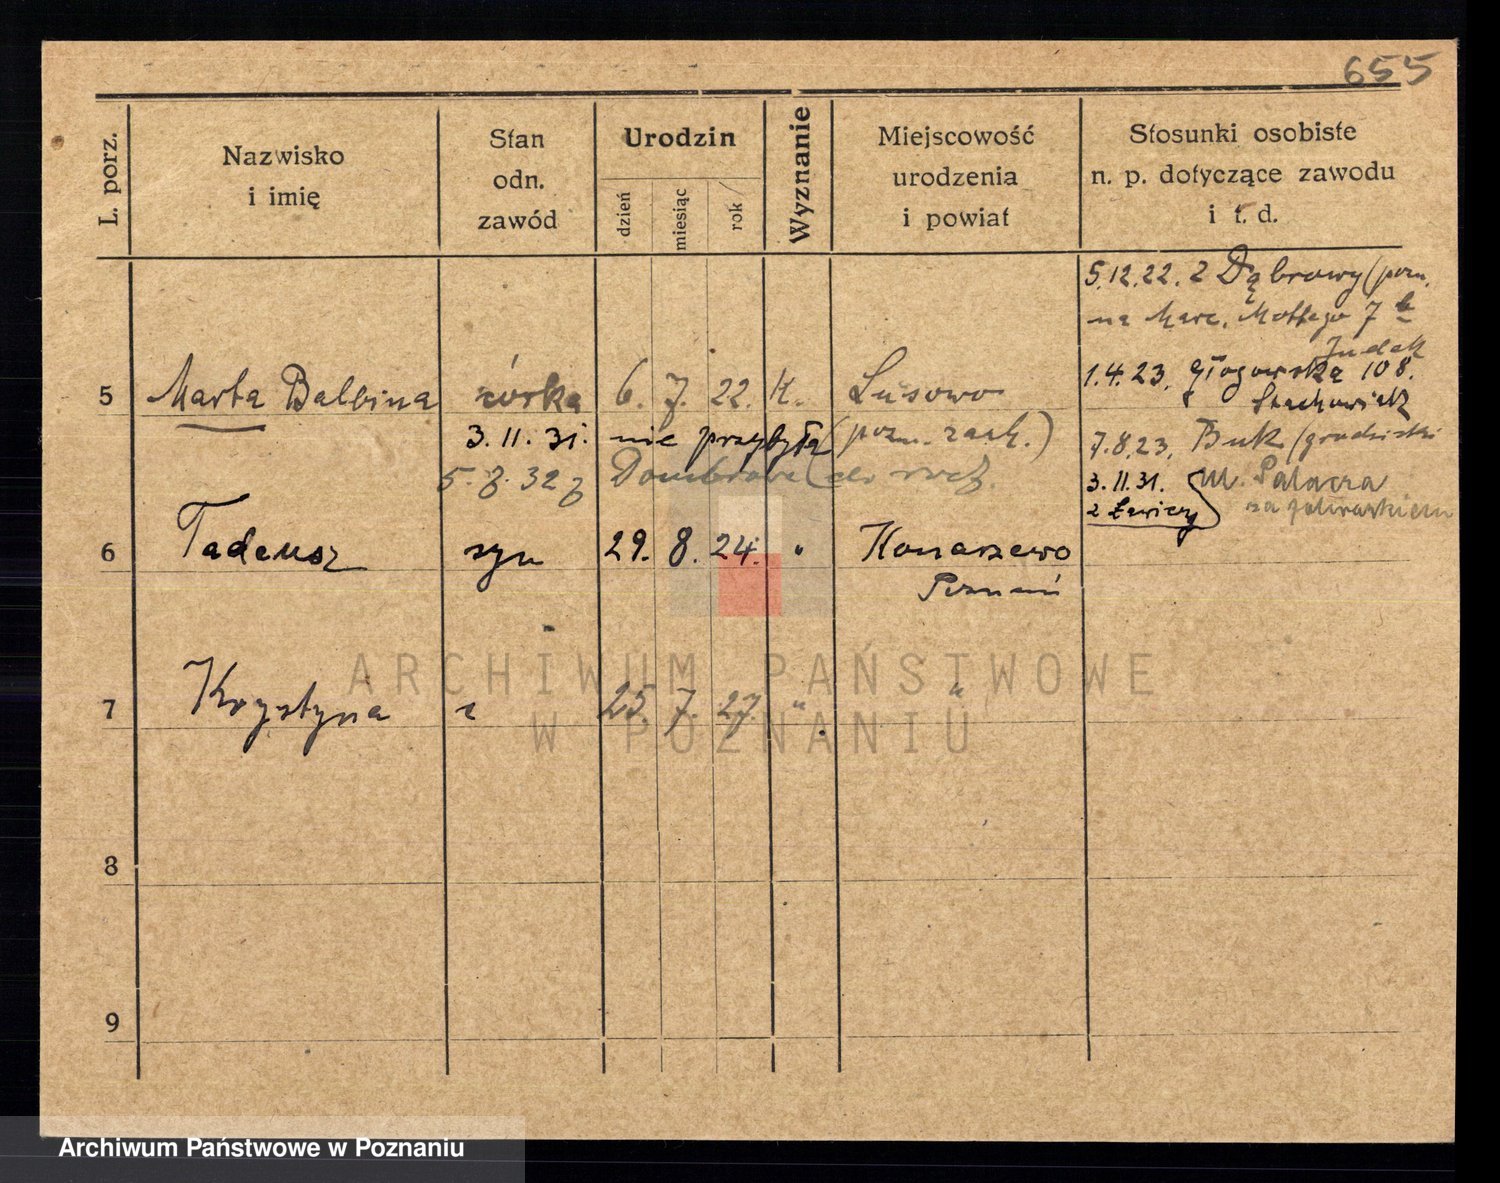 655
L. porz.
Nazwisko
i imię
Stan
odn.
zawód
Urodzin
dzień
miesiąc
rok
Wyznanie
Miejscowość
urodzenia
i powiat
Stosunki osobiste
n. p. dotyczące zawodu
i t. d.
5.12.22. z Dąbrowy (pozn.
na Marc. Mottego 7
1.4.23. Głogowska 108.
5 Marta Balbina córka 6. 7. 22. K. Lusowo
3.11.31. nie przybyła (pozn. zach.)
7.8.23. Buk (grodziski
3.11.31. ul. Palacza
z Ławicy
6 Tadeusz syn 29. 8. 24. " Konarzewo
Poznań
7 Krystyna c 25. 7. 27. " "
8
9
ARCHIWUM PAŃSTWOWE
W POZNANIU
Archiwum Państwowe w Poznaniu